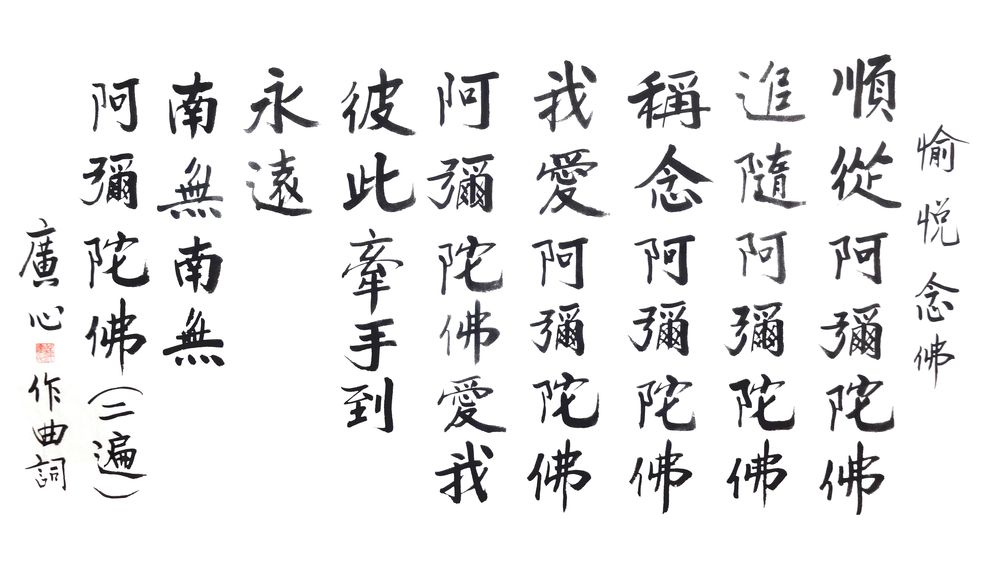 愉悅念佛
順從阿彌陀佛
追隨阿彌陀佛
稱念阿彌陀佛
我愛阿彌陀佛
阿彌陀佛愛我
彼此牽手到
永遠
南無南無
阿彌陀佛(二遍)
廣心作曲詞